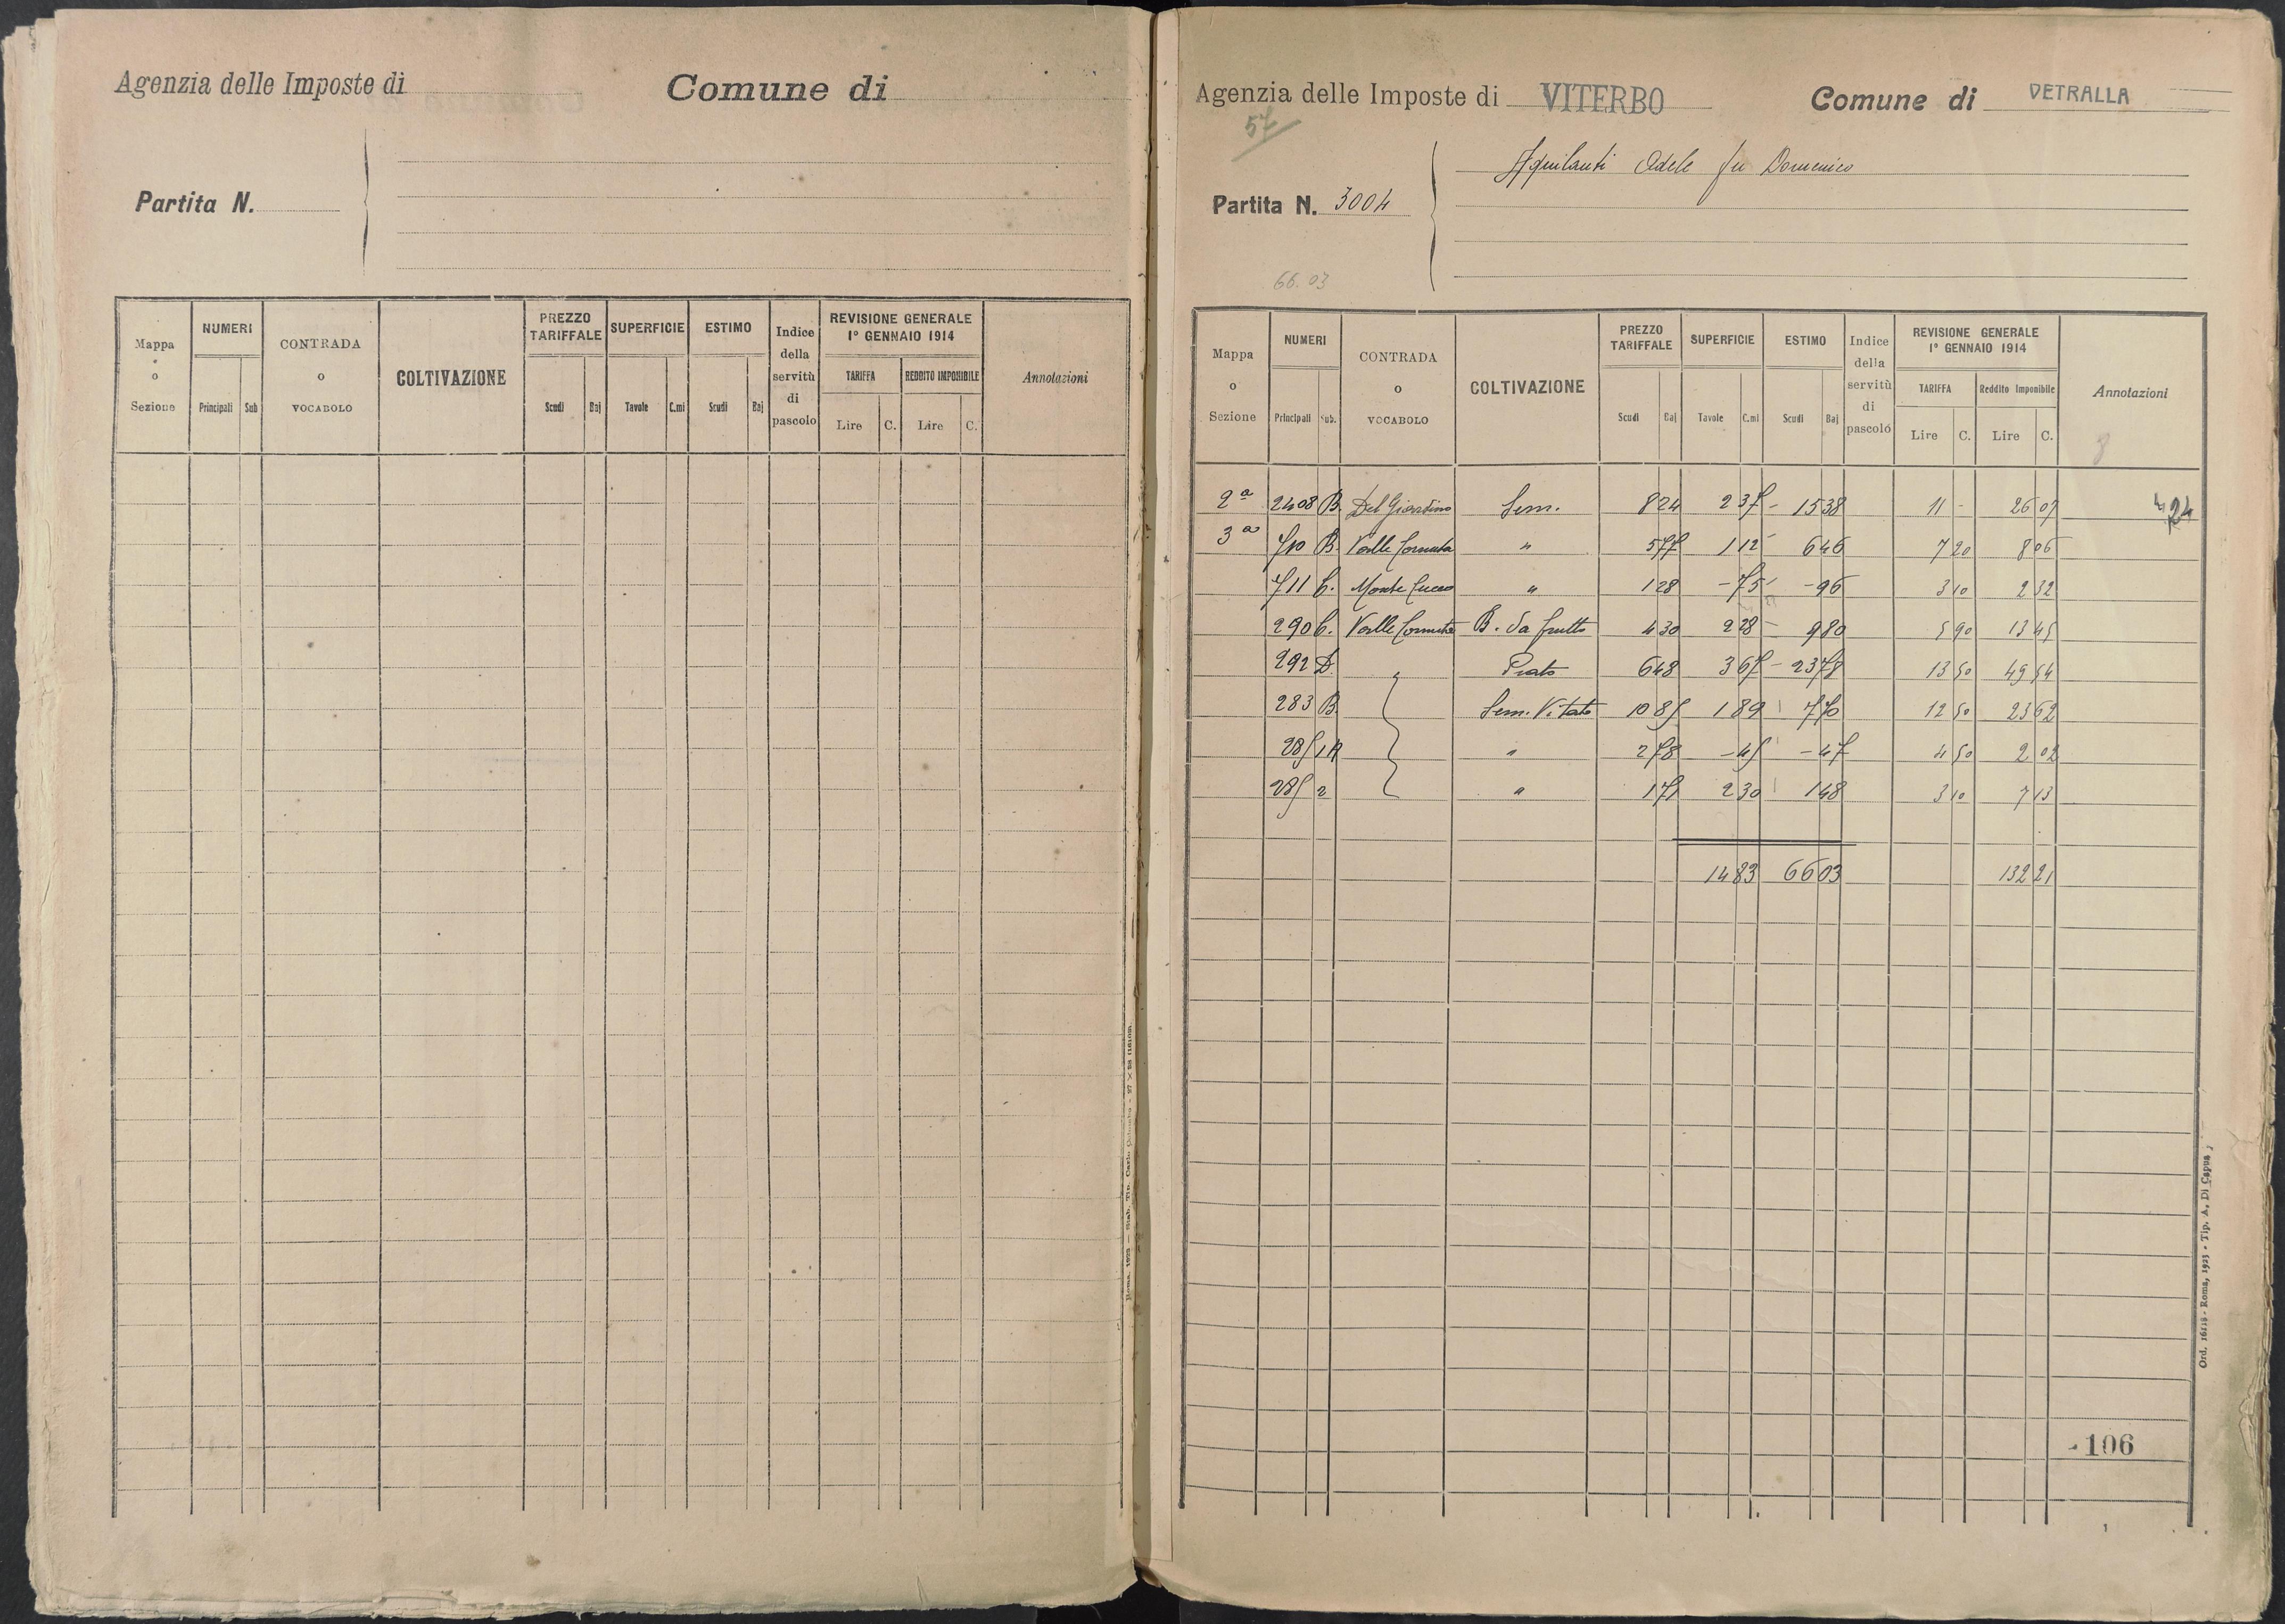 Agenzia delle Imposte di Comune di
Partita N.
Mappa o Sezione NUMERI Principali Sub CONTRADA o VOCABOLO COLTIVAZIONE PREZZO TARIFFALE Scudi Baj SUPERFICIE Tavole C.mi ESTIMO Scudi Baj Indice della servitù di pascolo REVISIONE GENERALE 1° GENNAIO 1914 TARIFFA Lire C. REDDITO IMPONIBILE Lire C. Annotazioni
Agenzia delle Imposte di VITERBO Comune di VETRALLA
57
Aquilanti Adele fu Domenico
Partita N. 3004
66.03
Mappa o Sezione NUMERI Principali Sub. CONTRADA o VOCABOLO COLTIVAZIONE PREZZO TARIFFALE Scudi Baj SUPERFICIE Tavole C.mi ESTIMO Scudi Baj Indice della servitù di pascolo REVISIONE GENERALE 1° GENNAIO 1914 TARIFFA Lire C. Reddito Imponibile Lire C. Annotazioni
2ª 2408 B. Del Giardino Sem. 8 24 2 37 - 15 38 11 - 26 07 24
3ª 710 B. Valle Cornuta " 5 77 1 12 6 46 7 20 8 06
711 C. Monte Cucco " 1 28 - 75 - 96 3 10 2 32
290 C. Valle Cornuta B. da frutto 4 30 2 28 - 9 80 5 90 13 45
292 D. Prato 6 48 3 67 - 23 78 13 50 49 54
283 B. Sem. Vitato 10 85 1 89 7 70 12 50 23 62
285 1A " 2 78 - 45 - 47 4 50 2 02
285 2 " 1 71 2 30 1 48 3 10 7 13
14 83 66 03 132 21
106
Ord. 16118 - Roma, 1923 - Tip. A. Di Capua